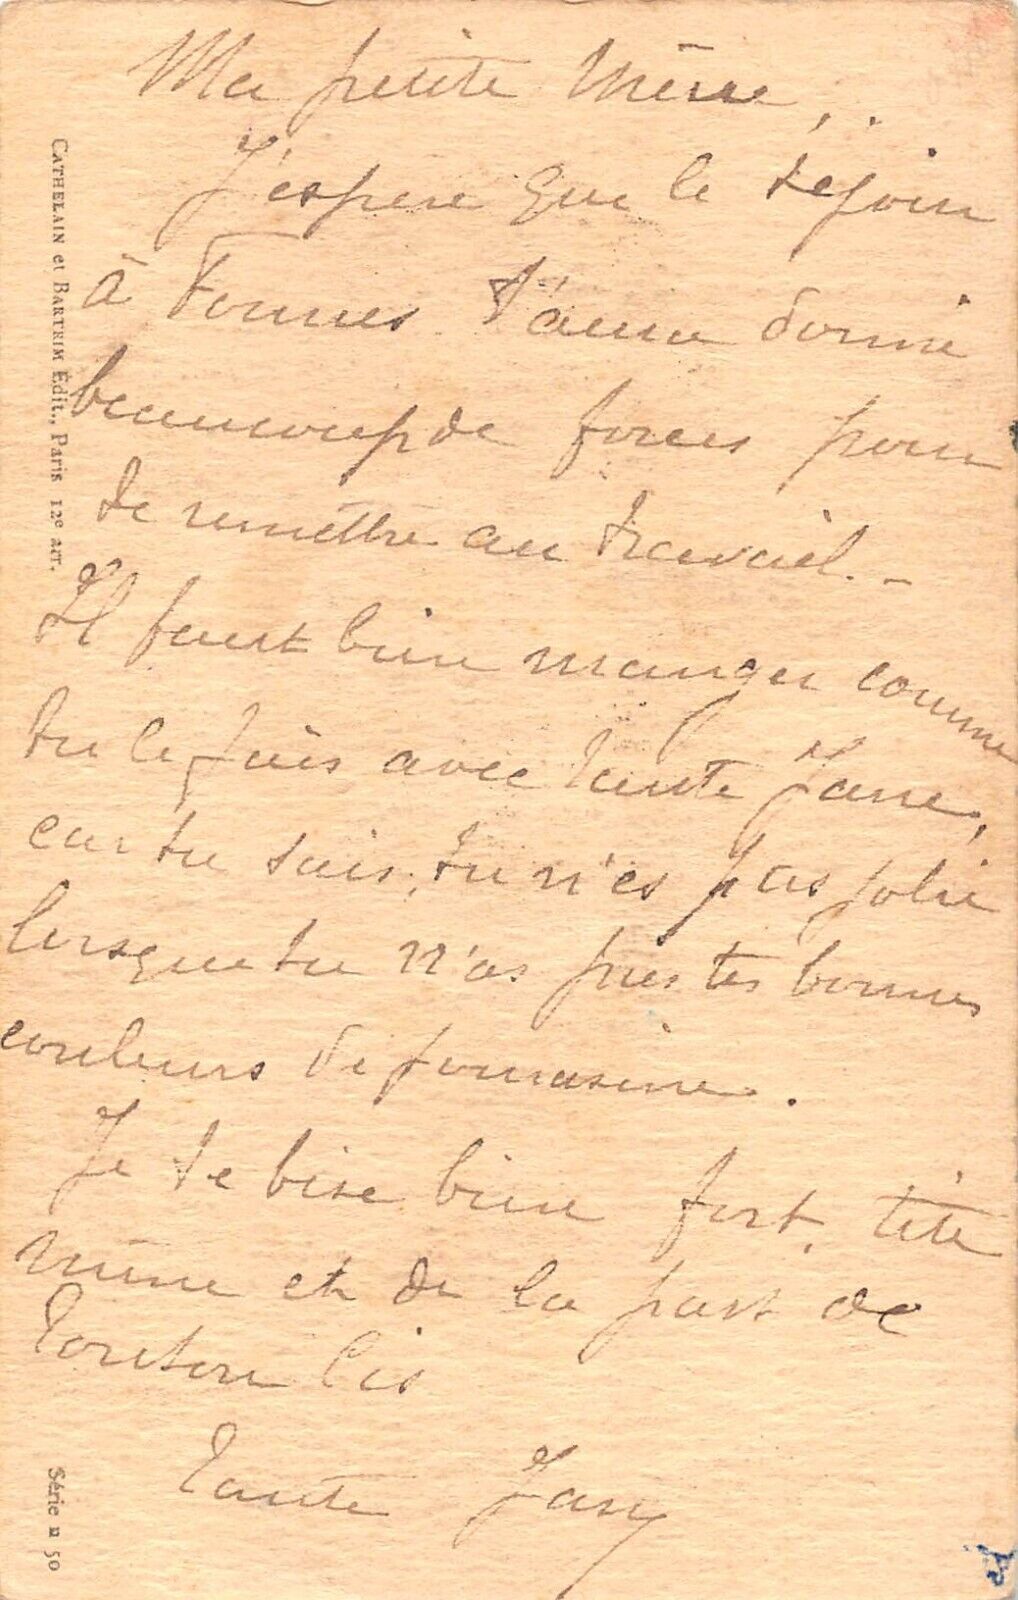 Ma petite
J'espere que le séjour
à t'aura donné
beaucoup de forces pour
te remettre au travail. -
Il faut bien manger comme
tu le fais avec tante Jane,
car tu sais, tu n'es pas jolie
lorsque tu n'as pas tes bonnes
couleurs de
Je te bise bien fort, tite
et de la part de
tonton
tante Jany
CATHELAIN et BARTRIM Édit., Paris 12e arr.
Série n 50